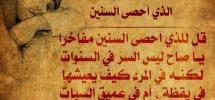 الذي أحصى السنين
قل للذي أحصى السنين مفاخرا
يا صاح ليس السر في السنوات
لكنه في المرء كيف يعيشها
في يقظة ، أم في عميق السبات